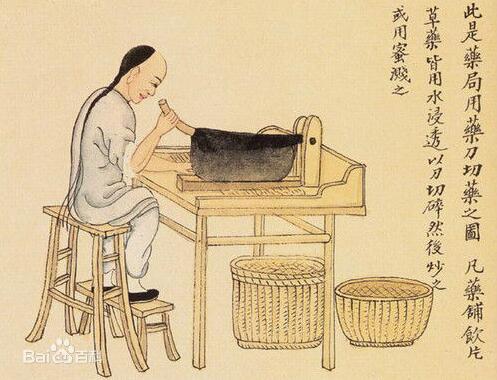 此是藥局用藥刀切藥之圖 凡藥鋪飲片
草藥皆用水浸透以刀切碎然後炒之
或用蜜溅之
Bai百科